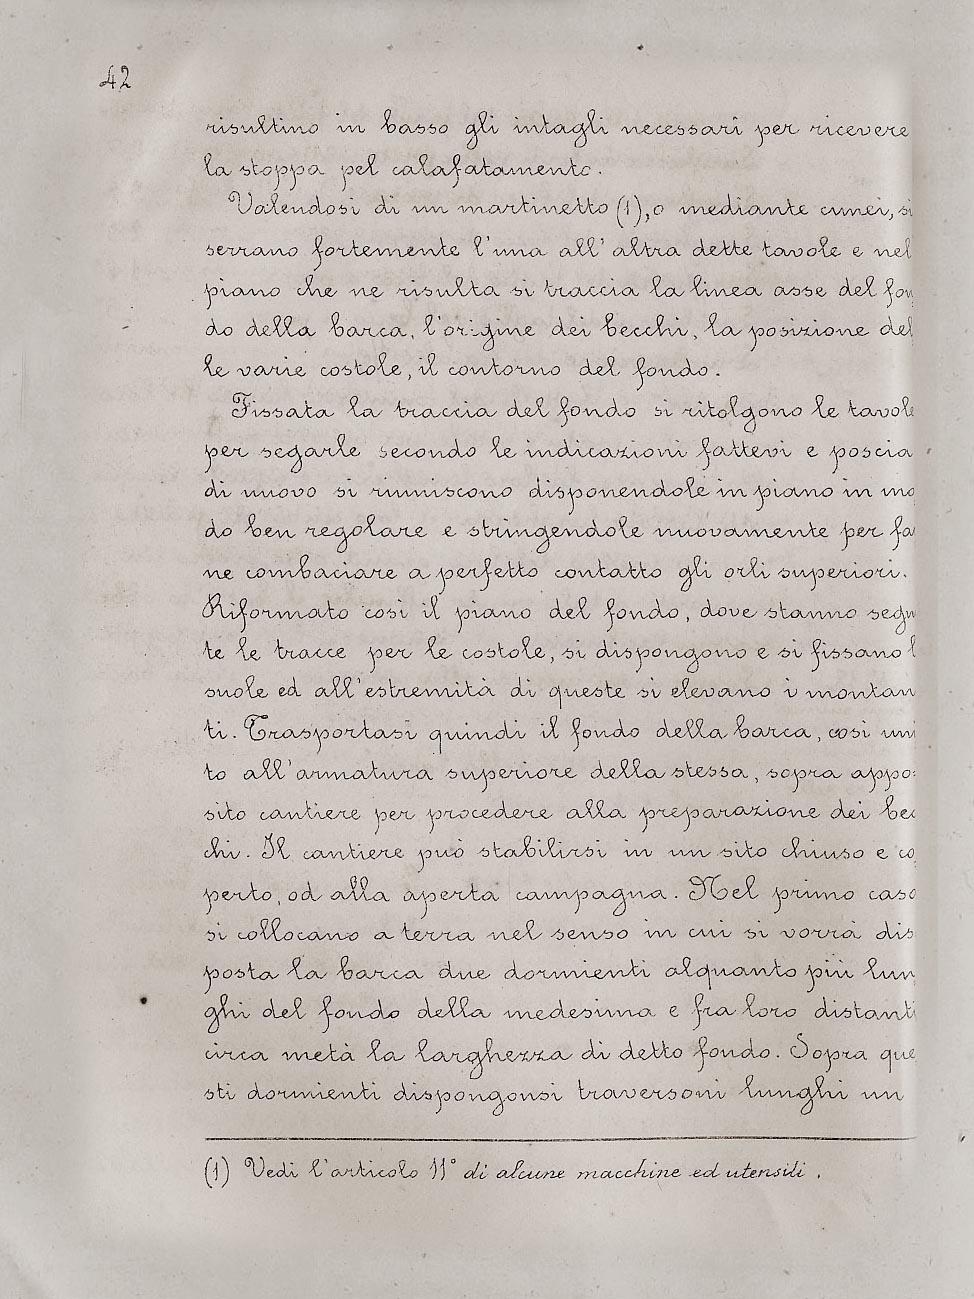 42
risultino in basso gli intagli necessarî per ricevere
la stoppa pel calafatamento.
Valendosi di un martinetto (1), o mediante cunei, si
serrano fortemente l'una all'altra dette tavole e nel
piano che ne risulta si traccia la linea asse del fon
do della barca, l'origine dei becchi, la posizione del
le varie costole, il contorno del fondo.
Fissata la traccia del fondo si ritolgono le tavole
per segarle secondo le indicazioni fattevi e poscia
di nuovo si riuniscono disponendole in piano in mo
do ben regolare e stringendole nuovamente per fa
ne combaciare a perfetto contatto gli orli superiori.
Riformato così il piano del fondo, dove stanno segn
te le tracce per le costole, si dispongono e si fissano l
suole ed all'estremità di queste si elevano i montan
ti. Trasportasi quindi il fondo della barca, così uni
to all'armatura superiore della stessa, sopra appo
sito cantiere per procedere alla preparazione dei bec
chi. Il cantiere può stabilirsi in un sito chiuso e co
perto, od alla aperta campagna. Nel primo caso
si collocano a terra nel senso in cui si vorrà dis
posta la barca due dormienti alquanto più lun
ghi del fondo della medesima e fra loro distanti
circa metà la larghezza di detto fondo. Sopra que
sti dormienti dispongonsi traversoni lunghi un
(1) Vedi l'articolo 11° di alcune macchine ed utensili.